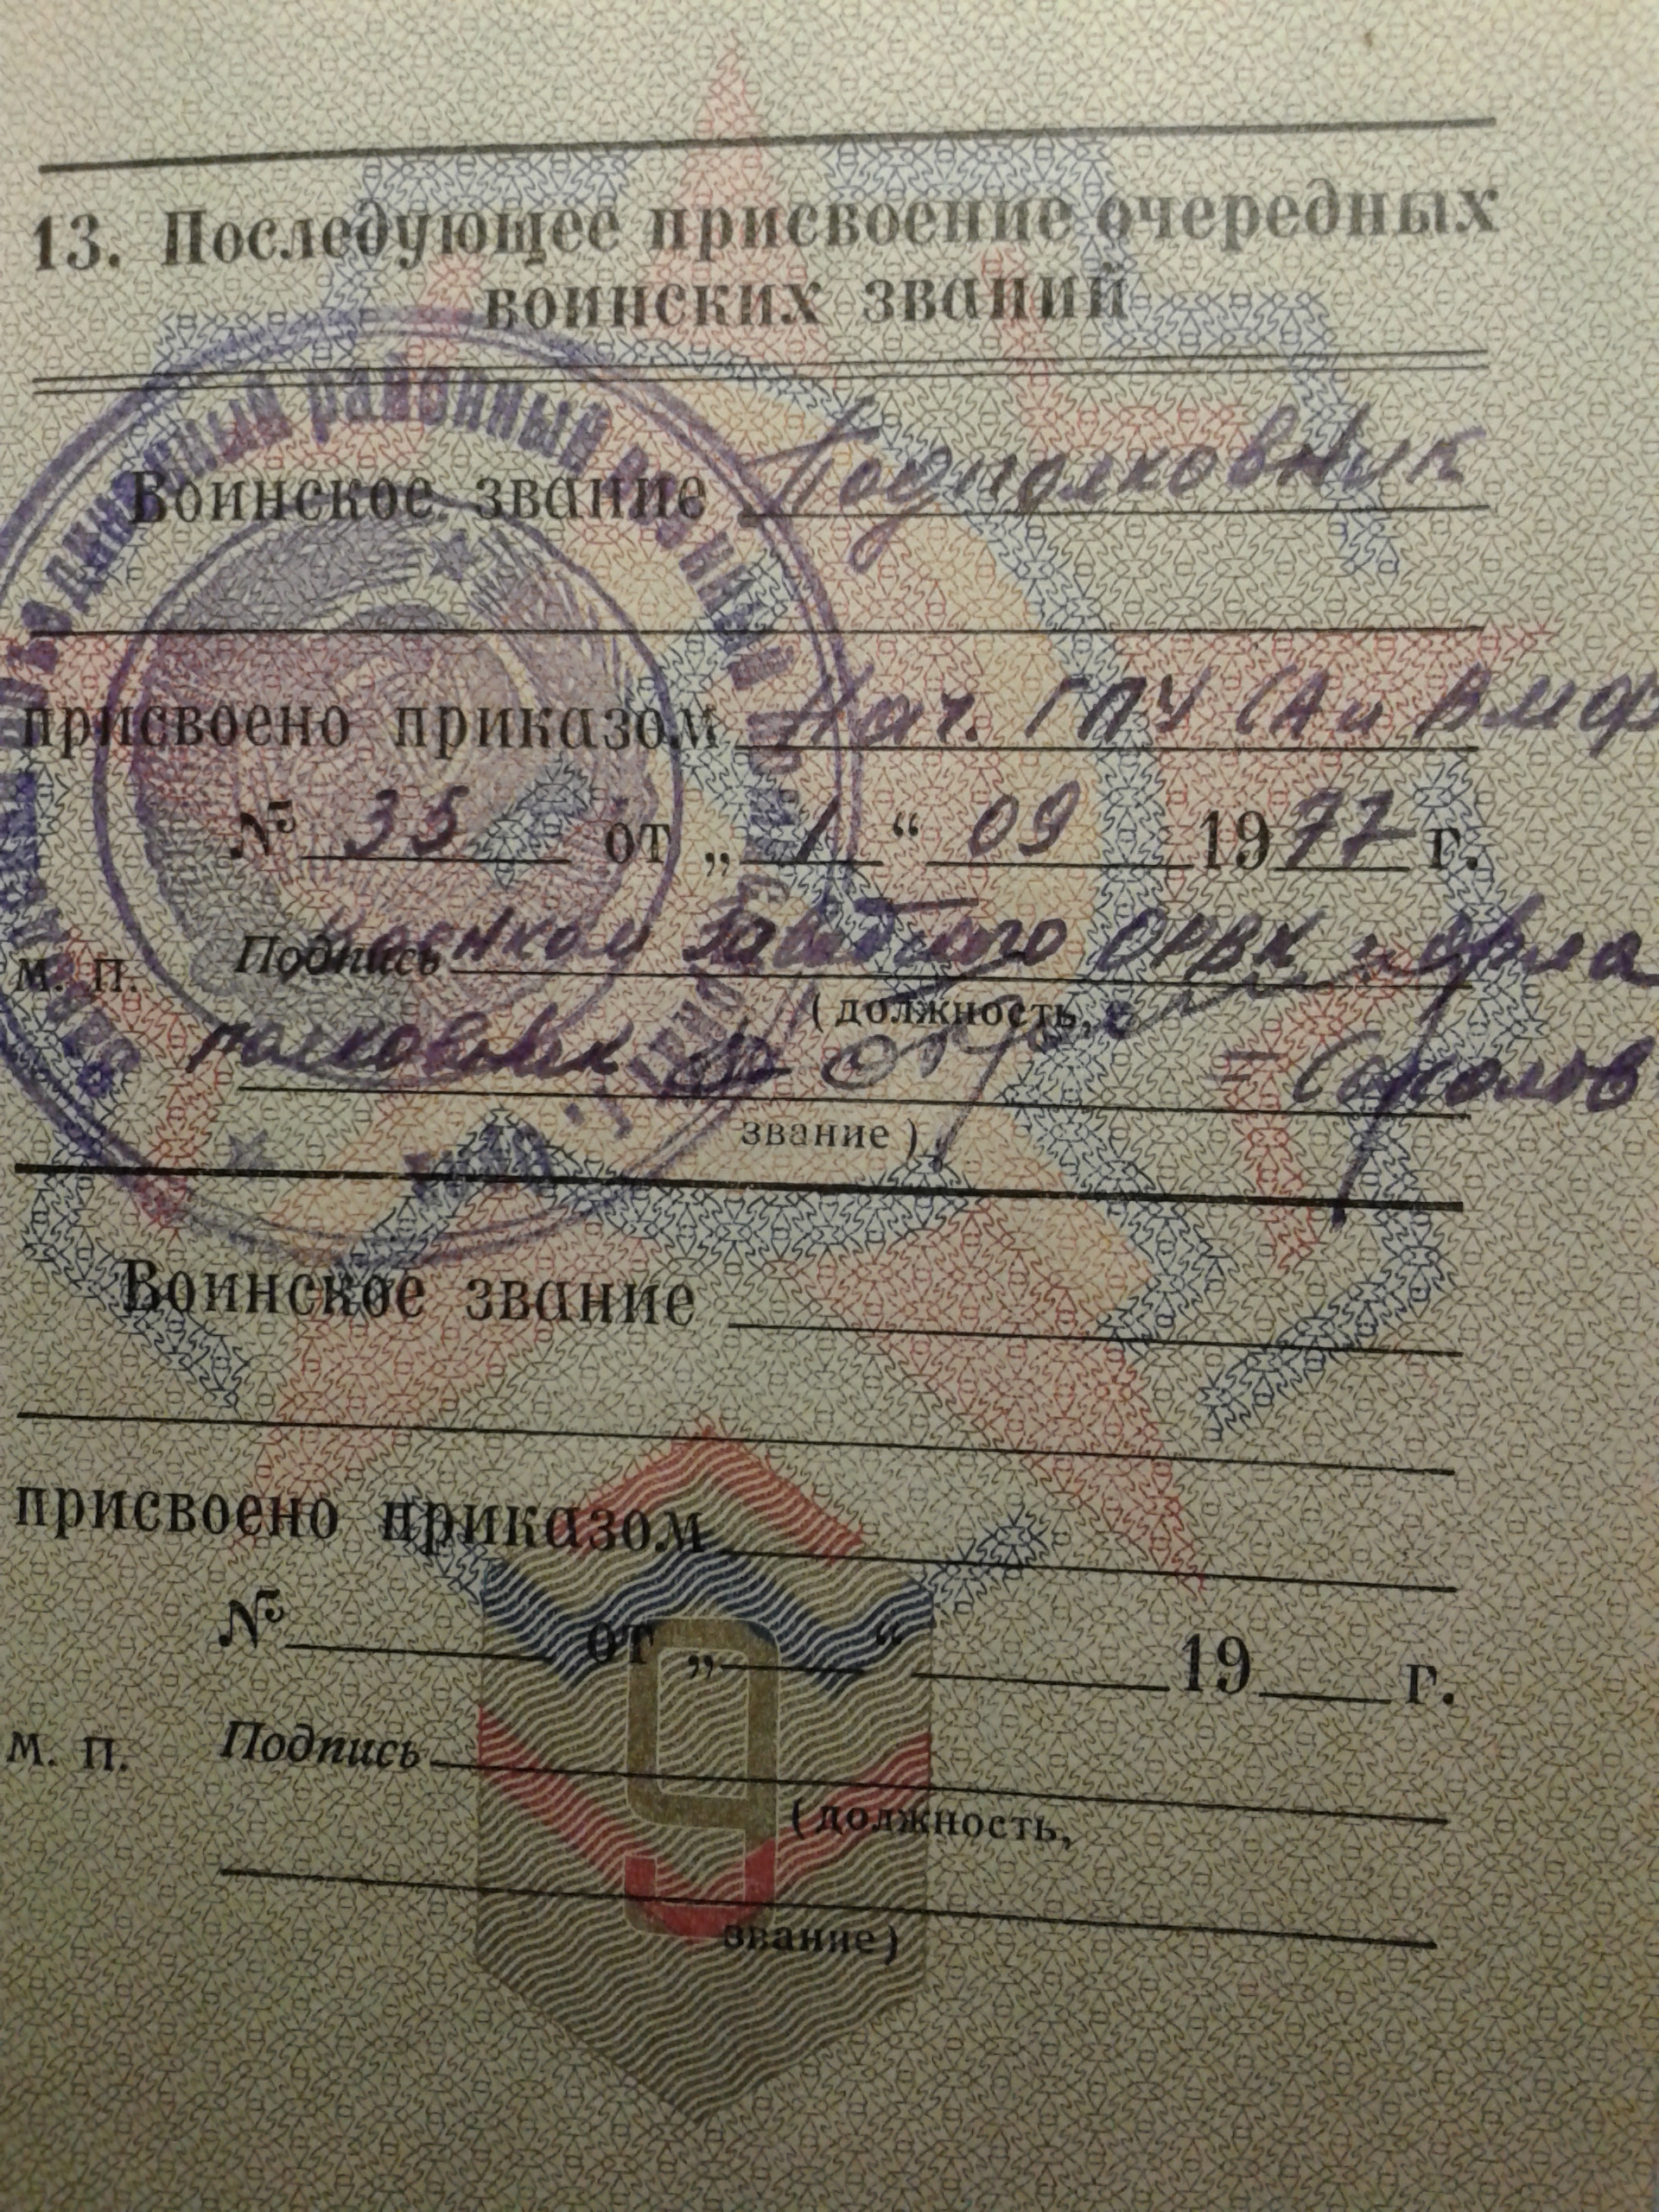 13. Последующее присвоение очередных
воинских званий
Воинское звание Подполковник
присвоено приказом Нач. ГПУ СА и ВМФ
№ 35 от „ 1 “ 09 1977 г.
М. П. Подпись Военком ОРВК г. Орла
(должность,
полковник = Соколов
звание)
Воинское звание
присвоено приказом
№ от „ “ 19 г.
М. П. Подпись
(должность,
звание)
9